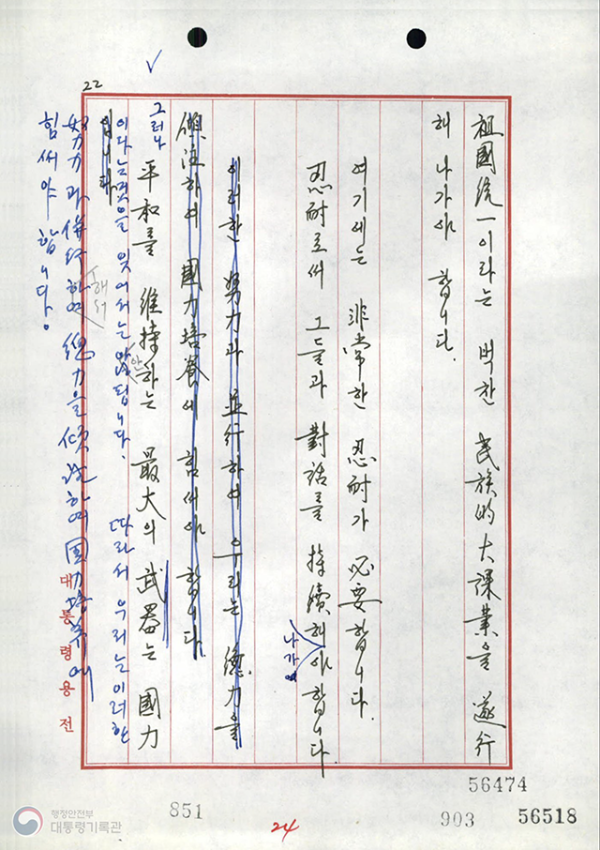 22
祖國統一이라는 벅찬 民族的 大課業을 遂行
해 나가야 합니다.
여기에는 非常한 忍耐가 必要합니다.
忍耐로써 그들과 對話를 持續해야 합니다.
나가
이러한 努力과 並行하여 우리는 總力을
傾注하여 國力培養에 힘써야 합니다.
그러나
平和를 維持하는 最大의 武器는 國力
입니다.
이라는것을 잊어서는 않됩니다. 따라서 우리는 이러한
안
努力과 倂行하여 總力을 傾注하여 國力培養에
해서
힘써야 합니다.
대통령용전
56474
851
24
903
56518
행정안전부
대통령기록관